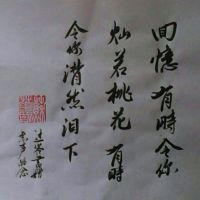 回憶有時令你
灿若桃花有時
令你潸然泪下